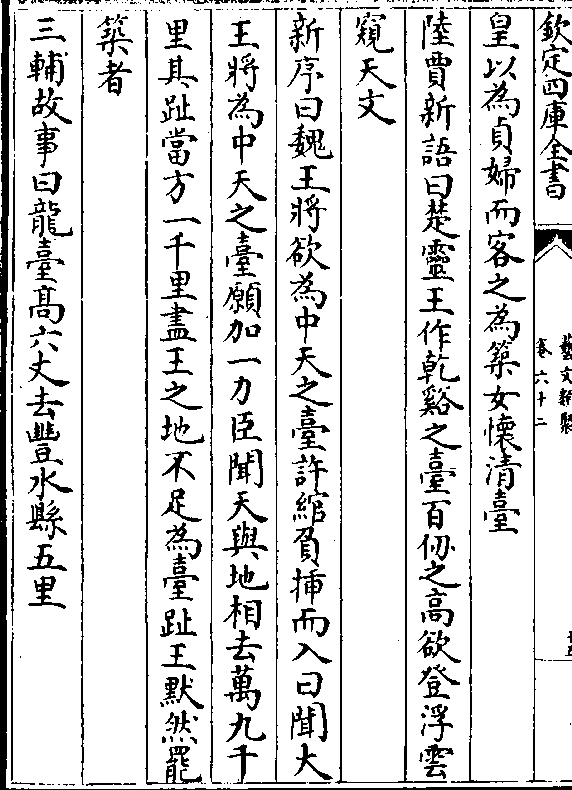 欽定四庫全書
藝文類聚
卷六十二
皇以為貞婦而客之為築女懷清臺
陸賈新語曰楚靈王作乾谿之臺百仭之高欲登浮雲
窺天文
新序曰魏王將欲為中天之臺許綰負揷而入曰聞大
王將為中天之臺願加一力臣聞天與地相去萬九千
里其趾當方一千里盡王之地不足為臺趾王默然罷
築者
三輔故事曰龍臺髙六丈去豐水縣五里